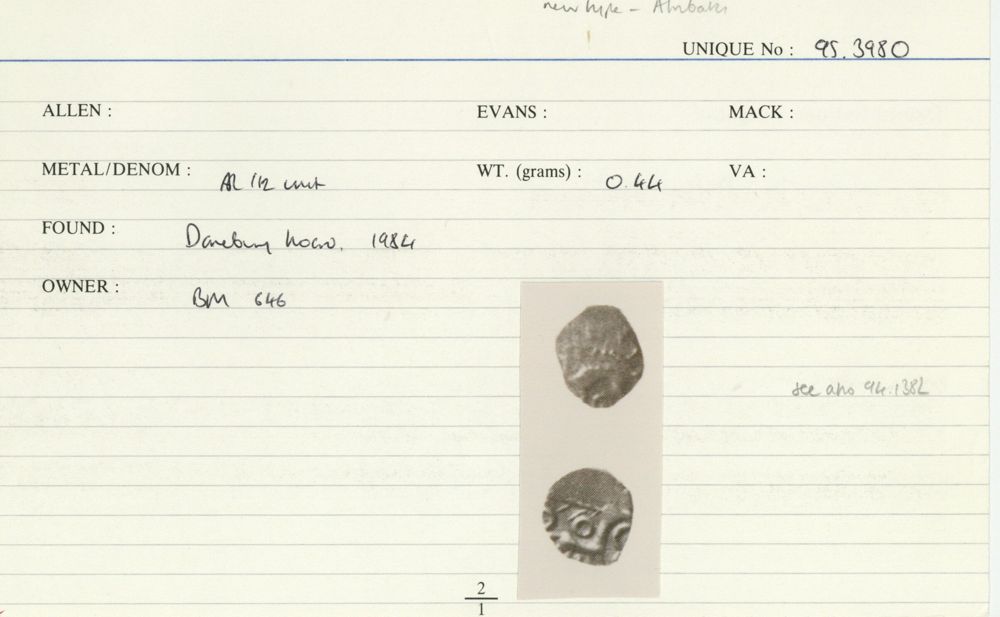 new type - Atrebates
UNIQUE No : 95.3980
ALLEN : EVANS : MACK :
METAL/DENOM : AR 1/2 unit WT. (grams) : 0.44 VA :
FOUND : Danebury hoard, 1984
OWNER : BM 646
see also 94.1382
2
1